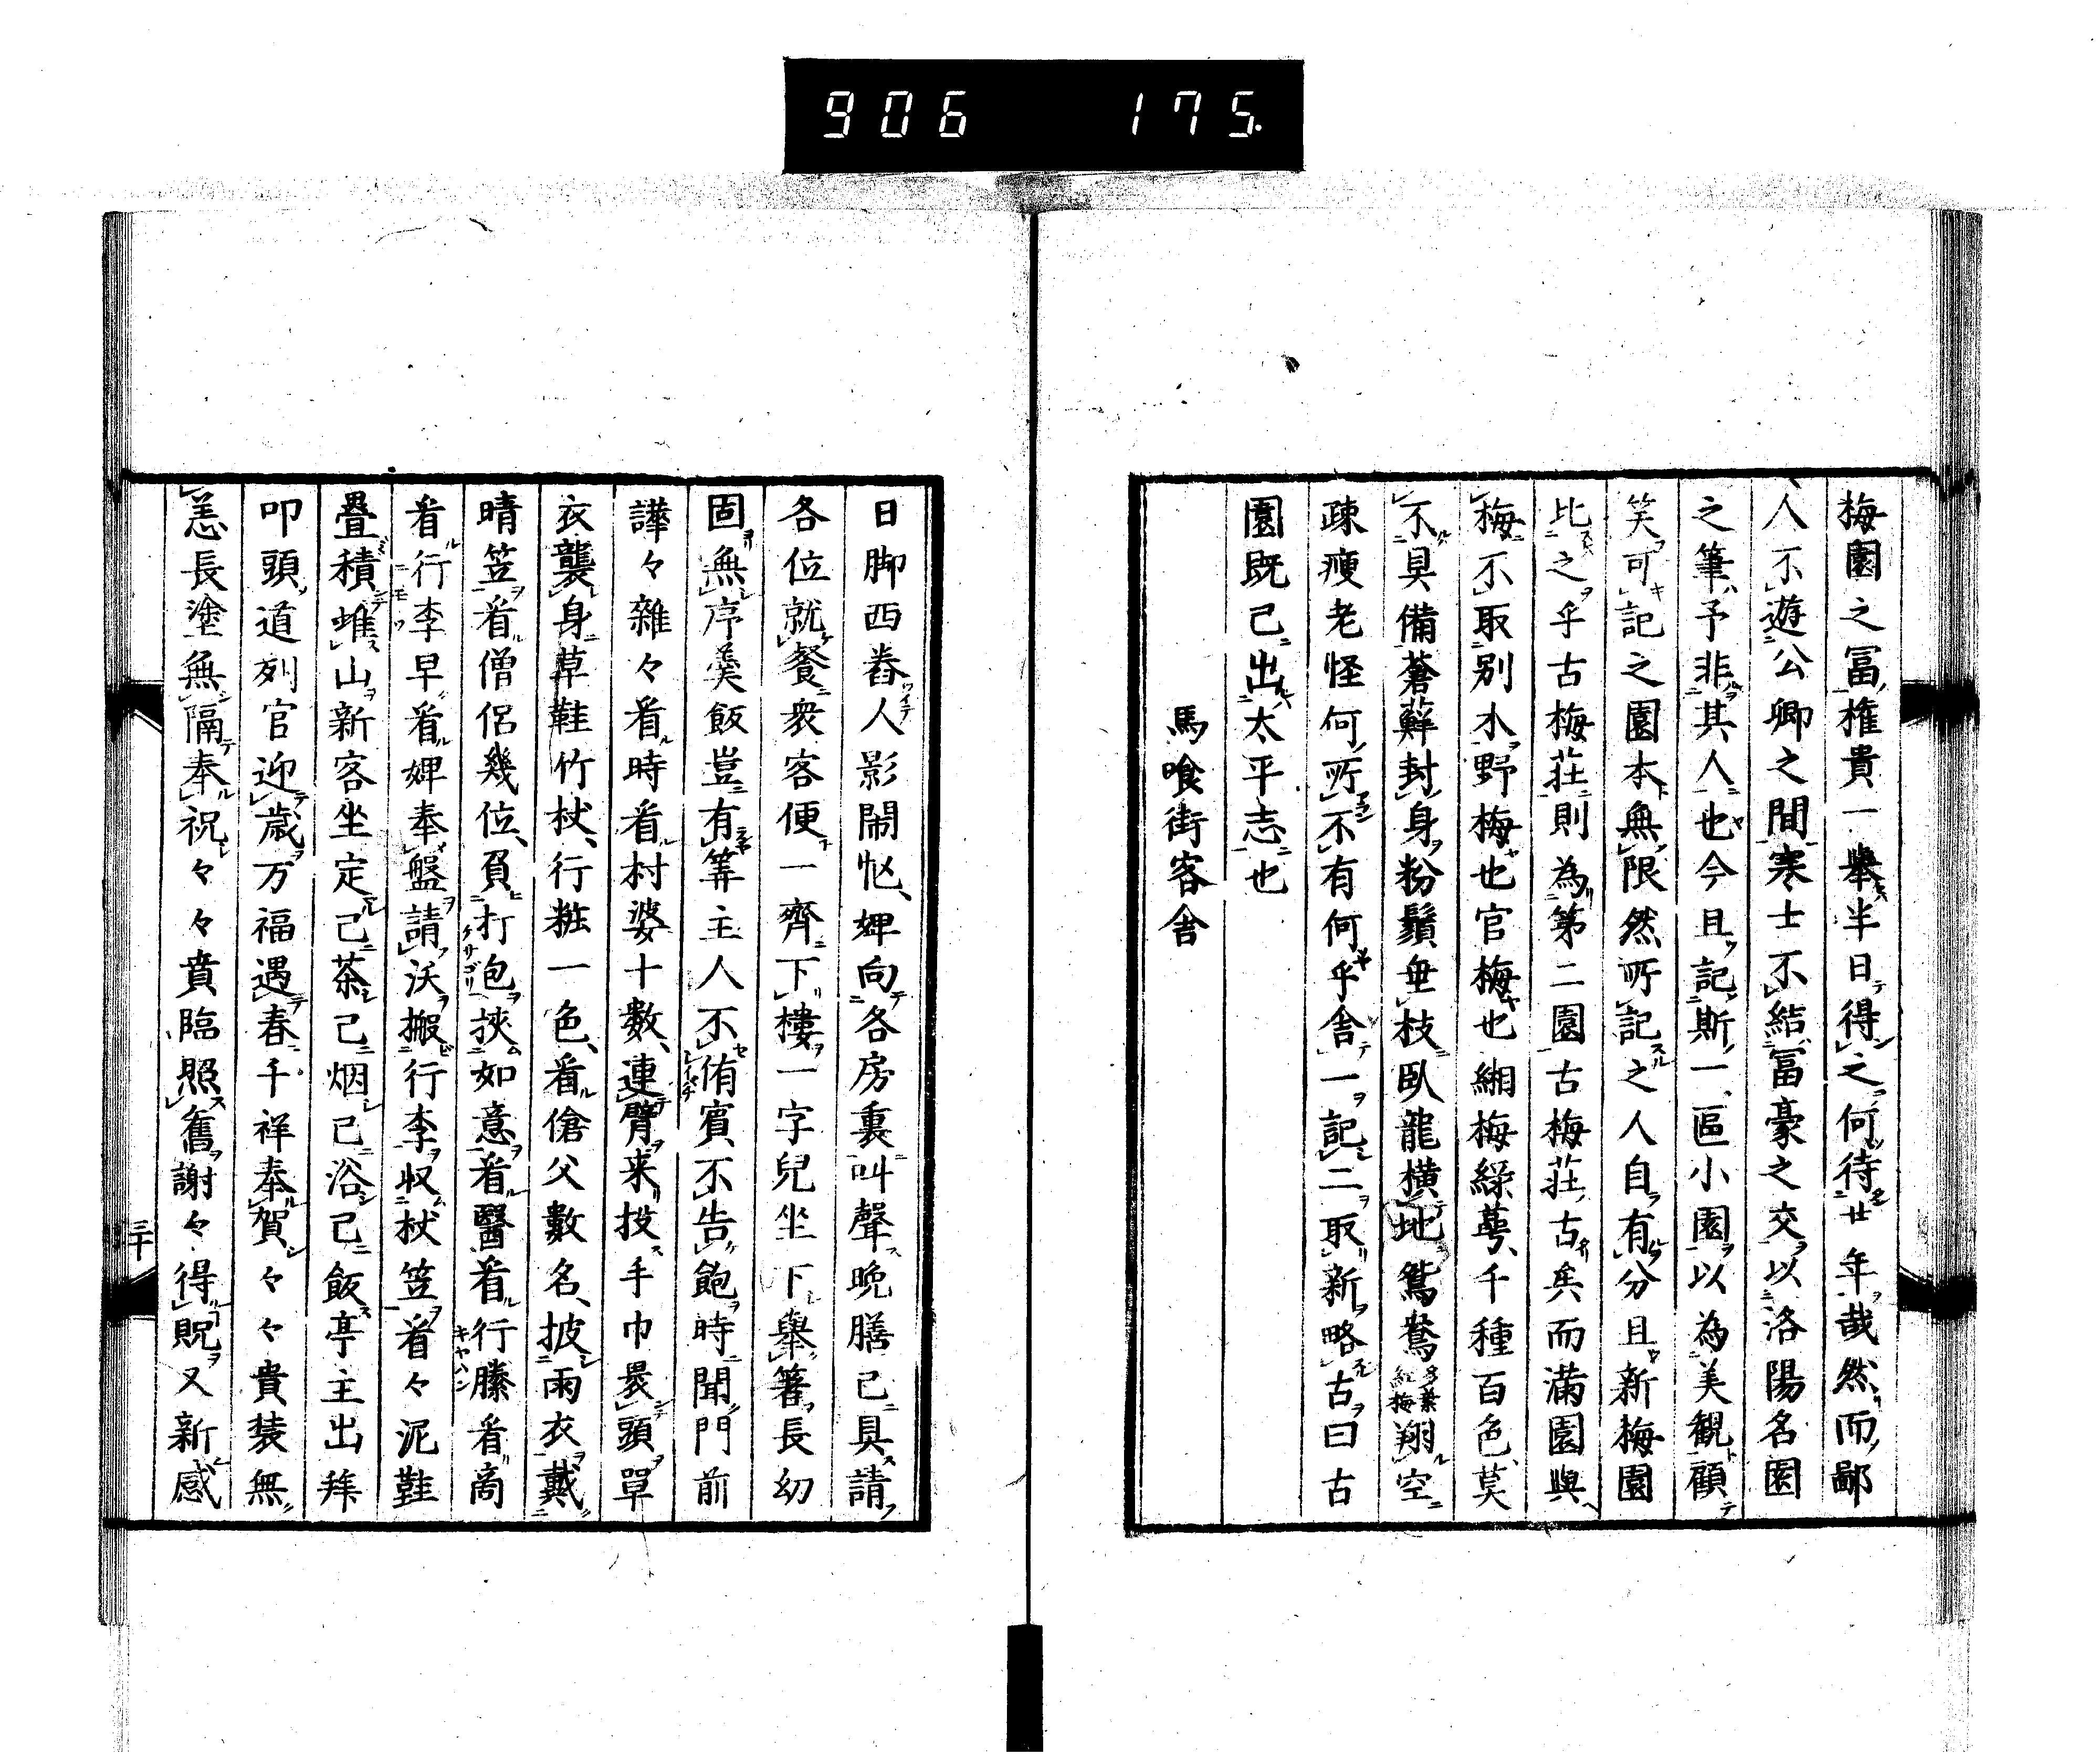 906 175.
梅園之冨権貴一擧半日得之何待廿年哉然而鄙
人不遊公卿之間寒士不結冨豪之交以洛陽名園
之筆予非其人也今且記斯一區小園以為美観顧
笑可記之園本無限然所記之人自有分且新梅園
比之乎古梅荘則為第二園古梅荘古矣而満園與
梅不取別木野梅也官梅也緗梅緑萼千種百色莫
不具備蒼蘚封身粉鬚垂枝臥龍横地鴛鴦多葉紅梅翔空
疎痩老怪何所不有何乎舎一記二取新略古曰古
園既已出太平志也
馬喰街客舎
日脚西舂人影鬧忙婢向各房裏叫聲晩膳已具請
各位就餐衆客便一齊下樓一字兒坐下擧箸長幼
固無序羮飯豈有等主人不侑賓不告飽時聞門前
譁々雜々看時看村婆十數連臂来投手巾褁頭單
衣襲身草鞋竹杖行粧一色看傖父數名披雨衣戴
晴笠看僧侶幾位負打包挾如意看醫看行縢看商
看行李早看婢奉盤請沃搬行李収杖笠看々泥鞋
疊積堆山新客坐定已茶已烟已浴已飯亭主出拜
叩頭道列官迎歳万福遇春千祥奉賀々々貴装無
恙長塗無隔奉祝々々賁臨照舊謝々得貺又新感
三十